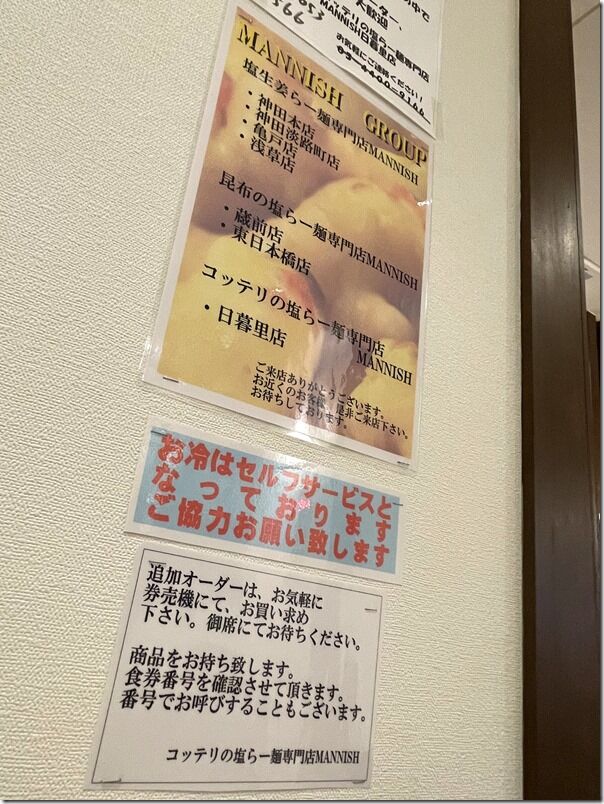 の中で
大歓迎
コッテリの塩らー麺専門店
MANNISH日暮里店
お気軽にご連絡ください！
566
MANNISH GROUP
塩生姜らー麺専門店MANNISH
・神田本店
・神田淡路町店
・亀戸店
・浅草店
昆布の塩らー麺専門店MANNISH
・蔵前店
・東日本橋店
コッテリの塩らー麺専門店
MANNISH
・日暮里店
ご来店ありがとうございます。
お近くのお客様、是非ご来店下さい。
お待ちしております。
お冷はセルフサービスと
なっております
ご協力お願い致します
追加オーダーは、お気軽に
券売機にて、お買い求め
下さい。御席にてお待ちください。
商品をお持ち致します。
食券番号を確認させて頂きます。
番号でお呼びすることもございます。
コッテリの塩らー麺専門店MANNISH